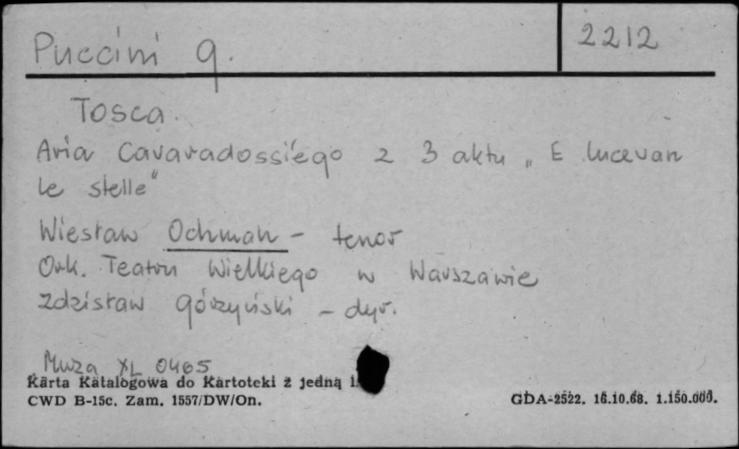 Puccini G.
2212
Tosca.
Aria Cavaradossiego z 3 aktu „E lucevan
le stelle"
Wiesław Ochman - tenor
Ork. Teatru Wielkiego w Warszawie
Zdzisław Górzyński - dyr.
Muza XL 0465
Karta Katalogowa do Kartoteki z jedną
CWD B-15c. Zam. 1557/DW/On.
GDA-2522. 16.10.68. 1.150.000.